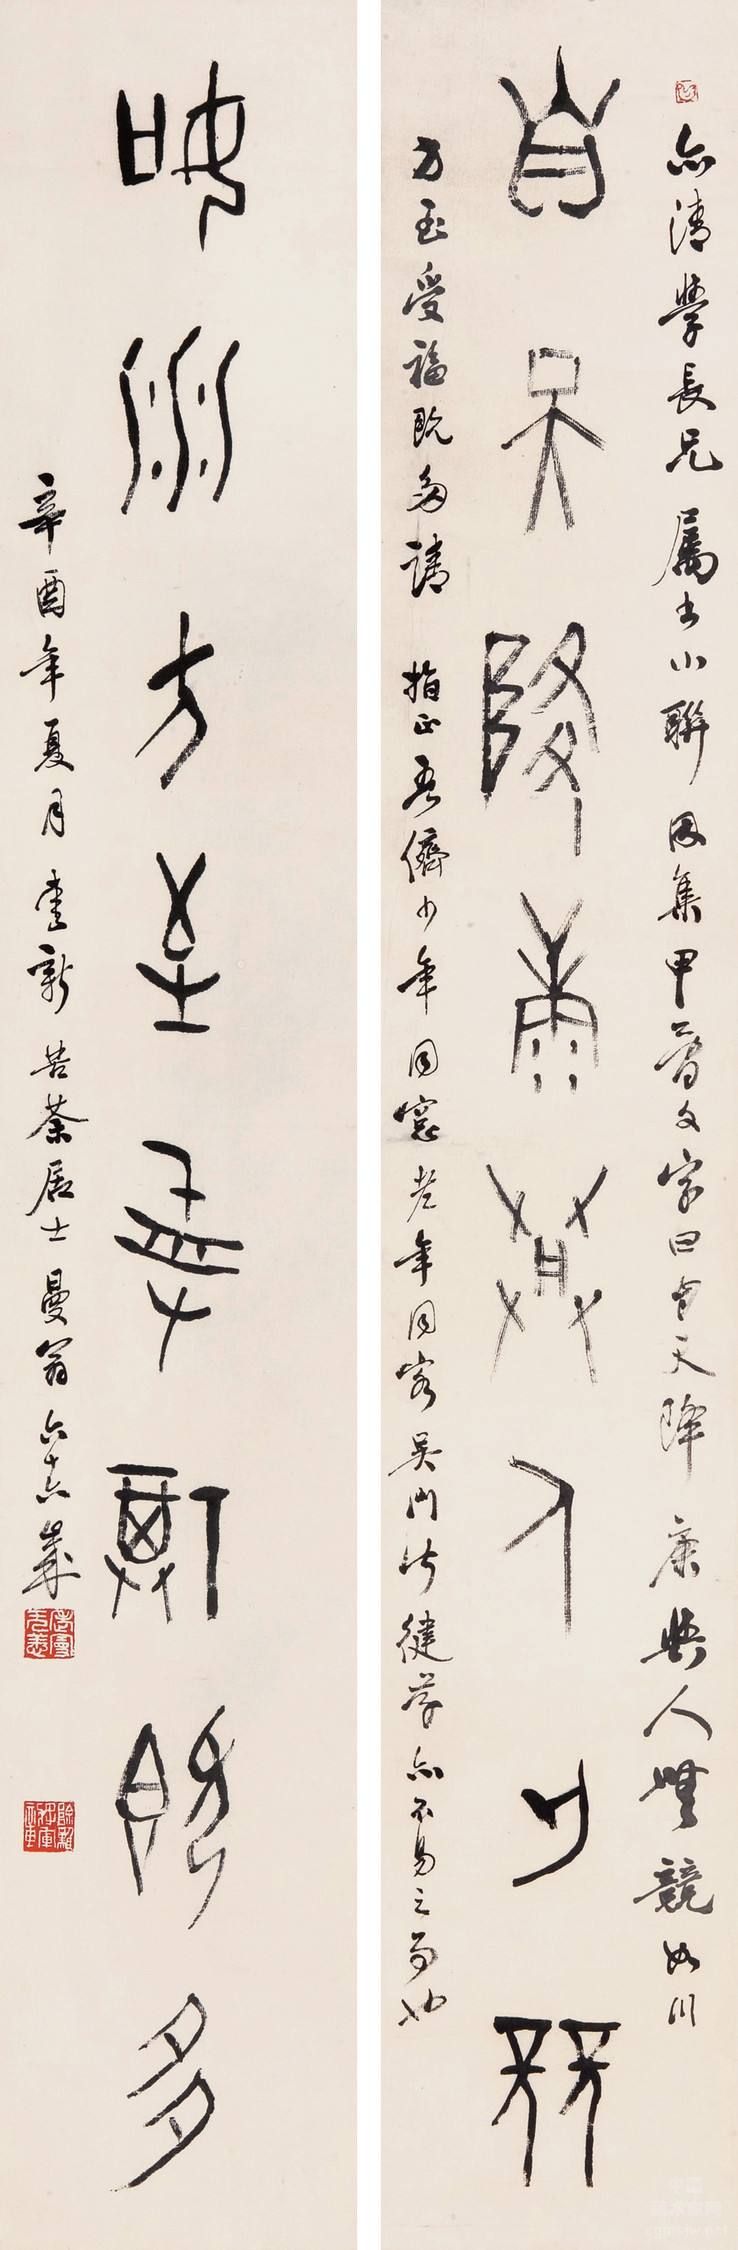 自天降康與人亡競
亦清學長兄屬書小聯因集甲骨文字曰自天降康與人無競如川
方至受福既多請 指正吾儕少年同窗老年同客吳門皆健存亦不易之事也
如川方至受福既多
辛酉年夏月 新苦茶居士曼翁六十六歲